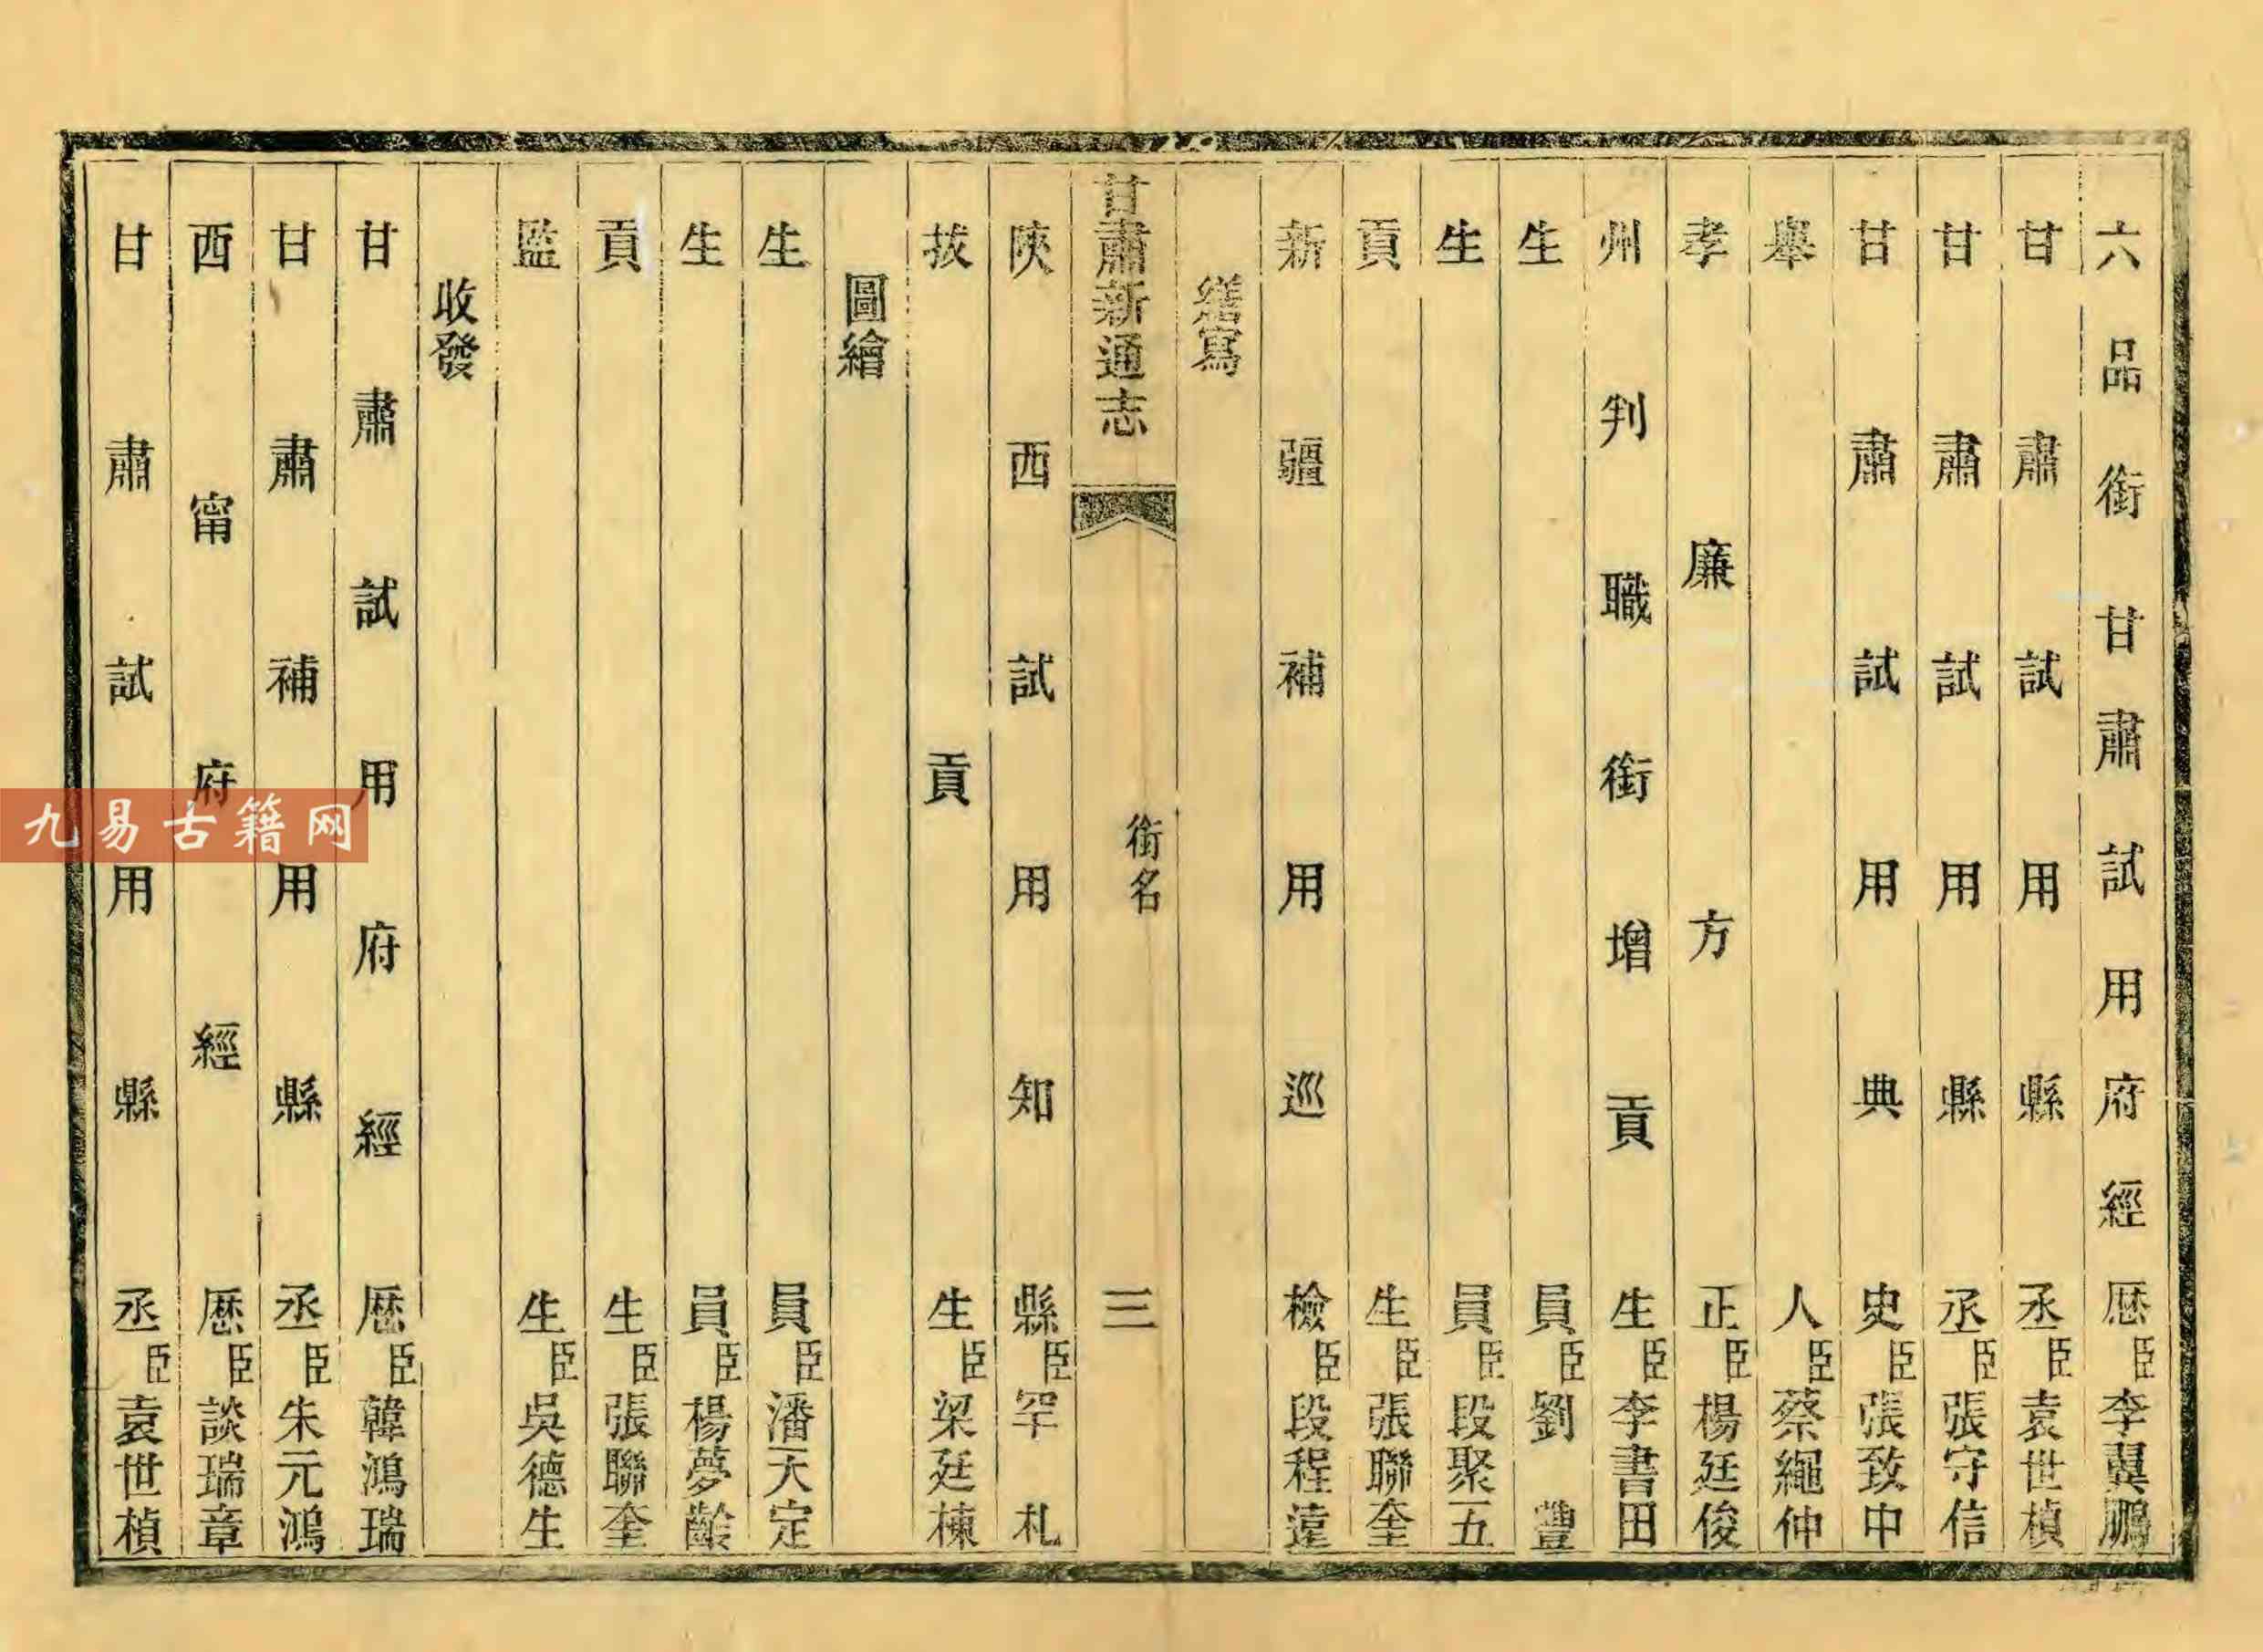 六品銜甘肅試用府經歷臣李翼鵬
甘肅試用縣丞臣袁世楨
甘肅試用縣丞臣張守信
甘肅試用典史臣張致中
舉人臣蔡繩仲
孝廉方正臣楊廷俊
州判職銜增貢生臣李書田
生員臣劉豐
生員臣段聚五
貢生臣張聯奎
新疆補用巡檢臣段程遠
繕寫
甘肅新通志
銜名
三
陝西試用知縣臣罕札
拔貢生臣梁廷棟
圖繪
生員臣潘天定
生員臣楊夢齡
貢生臣張聯奎
監生臣吳德生
收發
甘肅試用府經歷臣韓鴻瑞
甘肅補用縣丞臣朱元鴻
西甯府經歷臣談瑞章
甘肅試用縣丞臣袁世楨
九易古籍网